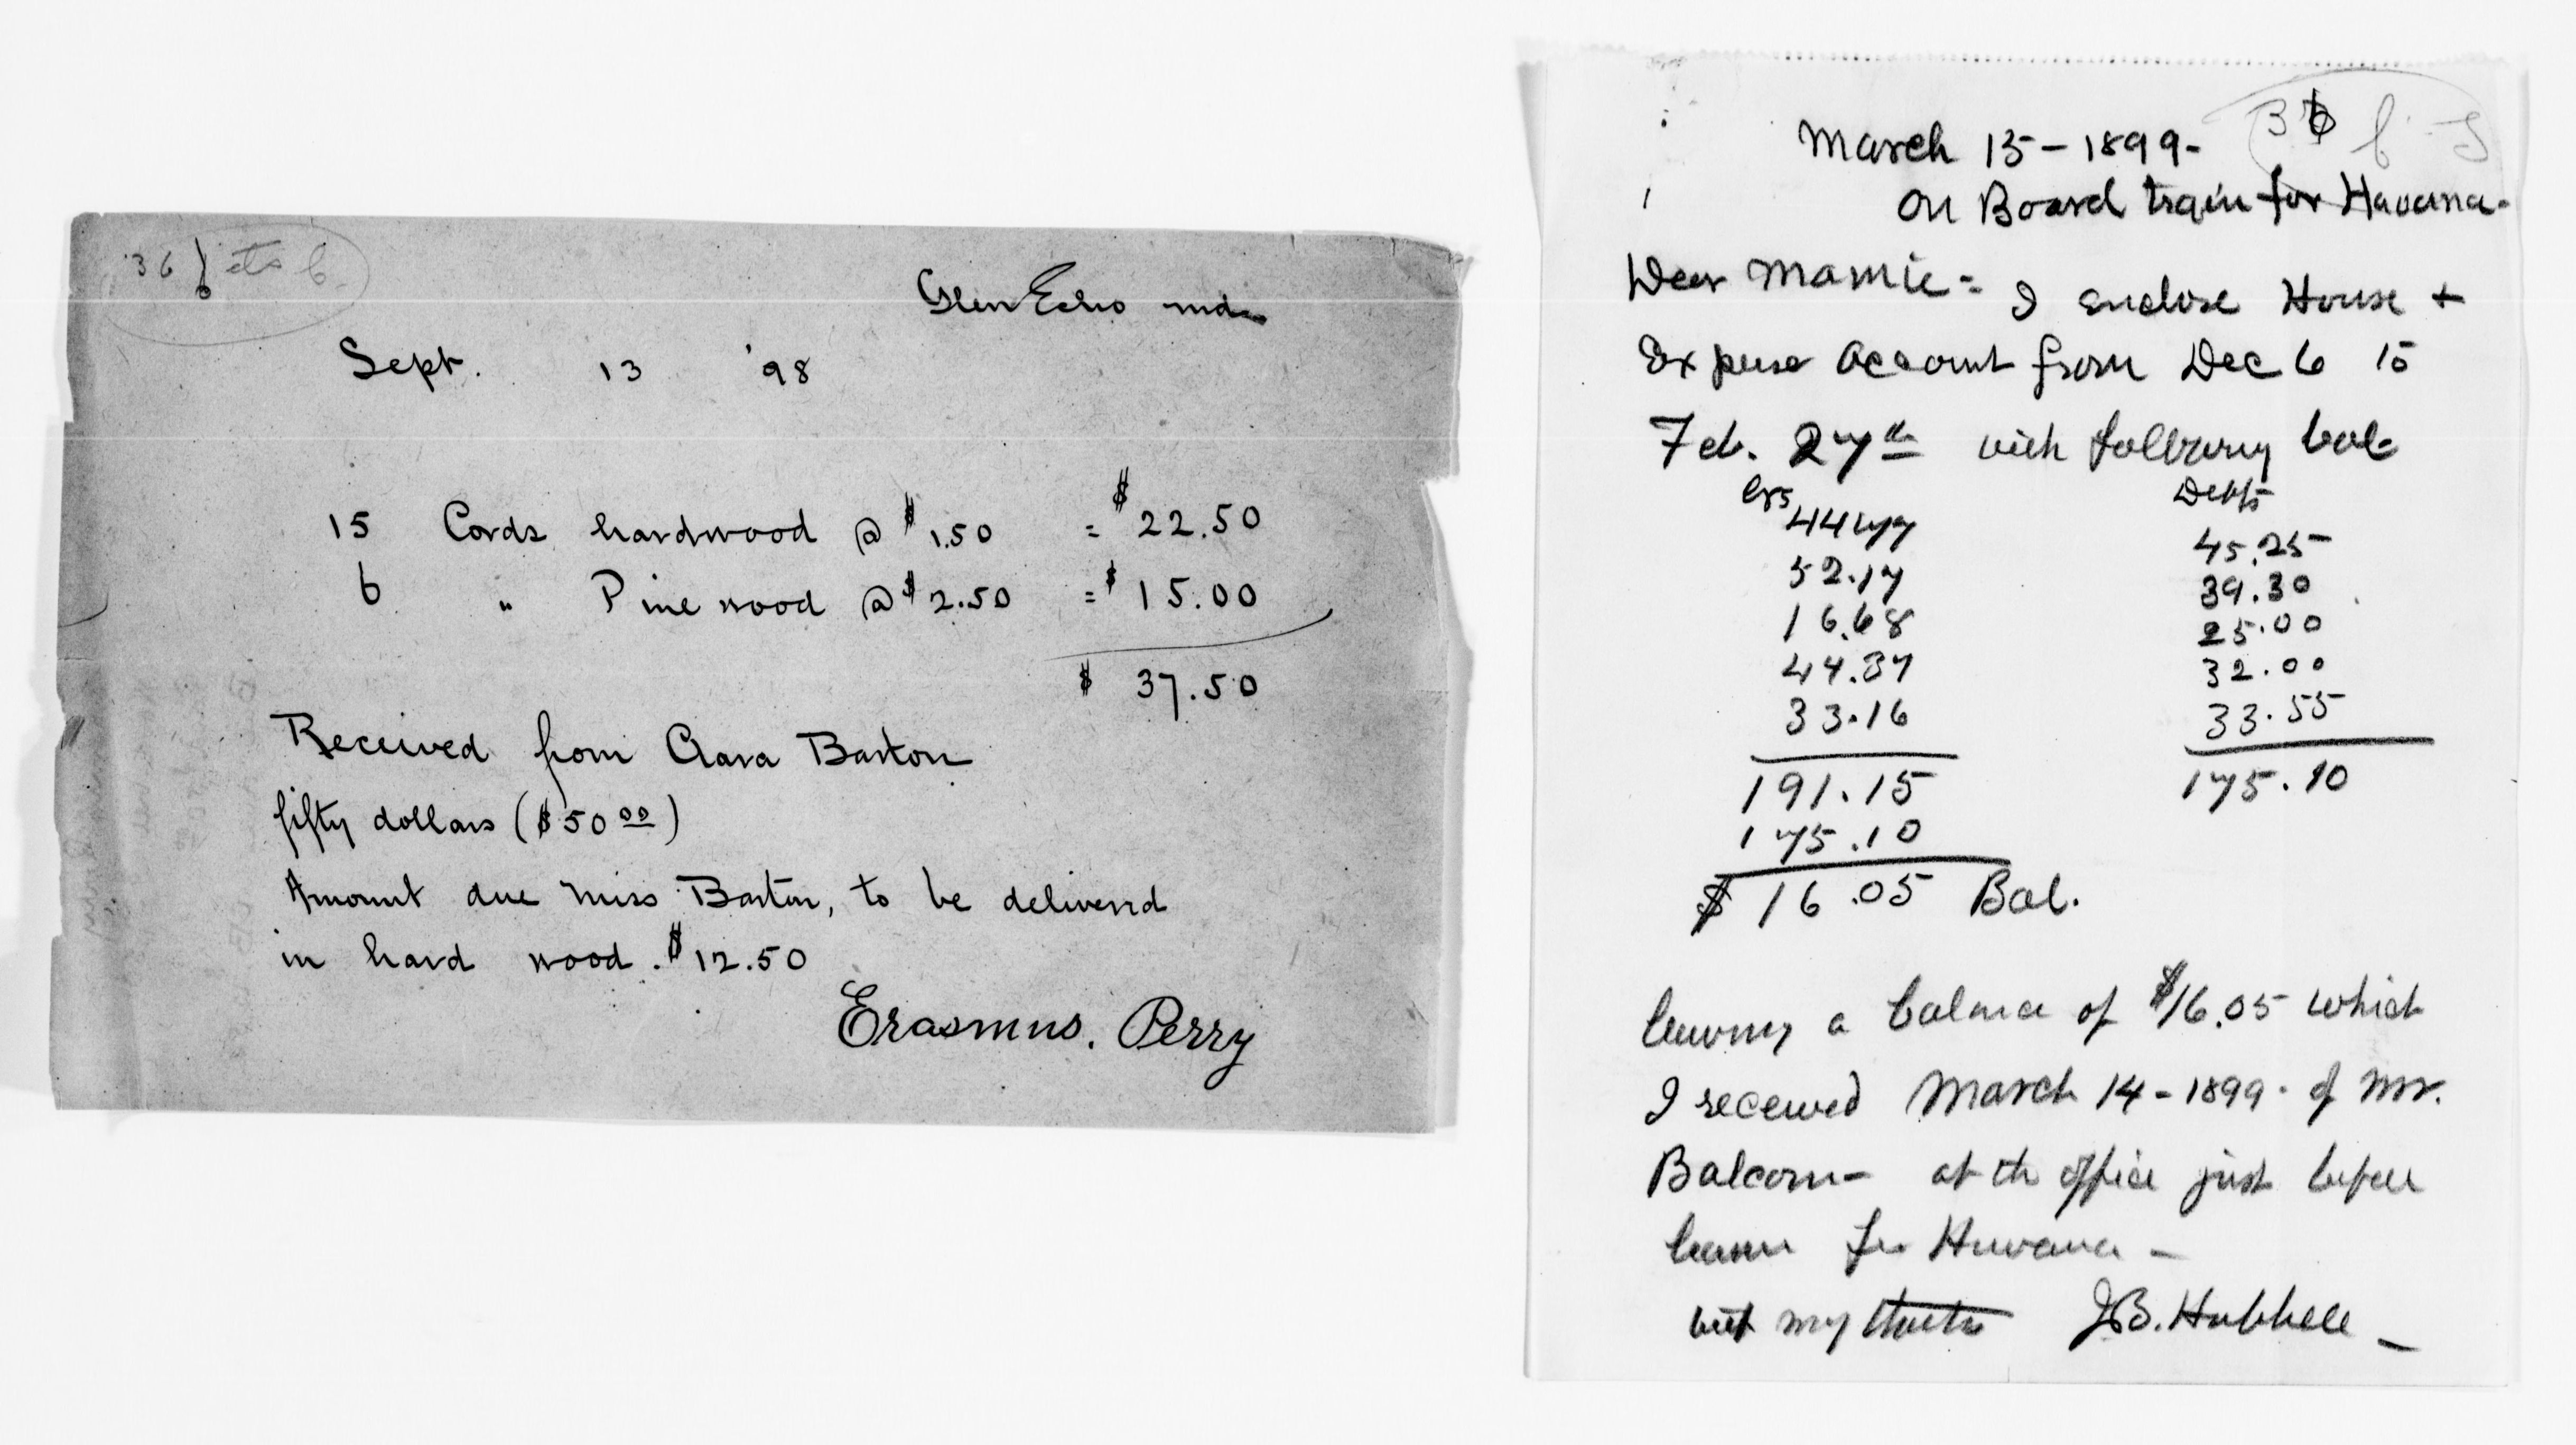 36
Glen Echo md.
Sept. 13 '98
15 Cords hardwood @ $1.50 = $22.50
6 " Pine wood @ $2.50 = $15.00
$ 37.50
Received from Clara Barton
fifty dollars ($50 00)
Amount due Miss Barton, to be delivered
in hard wood. $12.50
Erasmus. Perry
March 15 - 1899 -
On Board train for Havana -
Dear Mamie = I enclose House +
Expense Account from Dec 6 to
Feb. 27th with following bal
Crs Debts
44.77 45.25
52.17 39.30
16.68 25.00
44.37 32.00
33.16 33.55
191.15 175.10
175.10
$ 16.05 Bal.
leaving a balance of $16.05 which
I received March 14 - 1899 - of Mr.
Balcom - at the office just before
leaving for Havana -
my J.B. Hubbell -